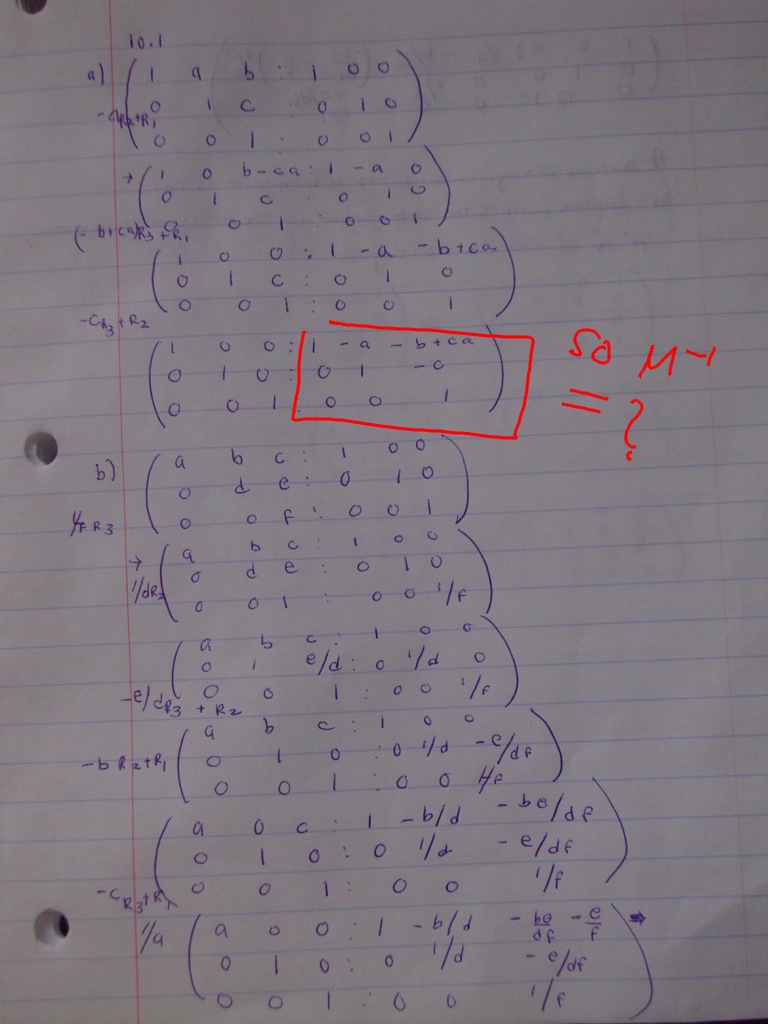 10.1
a) ( 1 a b : 1 0 0
0 1 c : 0 1 0
-aR2+R1
0 0 1 : 0 0 1 )
→ ( 1 0 b-ca : 1 -a 0
0 1 c : 0 1 0
0 0 1 : 0 0 1 )
(-b+ca)R3+R1
( 1 0 0 : 1 -a -b+ca
0 1 c : 0 1 0
0 0 1 : 0 0 1 )
-cR3+R2
( 1 0 0 : 1 -a -b+ca
0 1 0 : 0 1 -c
0 0 1 : 0 0 1 )
so M-1
= ?
b) ( a b c : 1 0 0
0 d e : 0 1 0
1/f R3 0 0 f : 0 0 1 )
→ ( a b c : 1 0 0
0 d e : 0 1 0
1/dR2 0 0 1 : 0 0 1/f )
( a b c : 1 0 0
0 1 e/d : 0 1/d 0
0 0 1 : 0 0 1/f )
-e/dR3 + R2
( a b c : 1 0 0
-bR2+R1 0 1 0 : 0 1/d -e/df
0 0 1 : 0 0 1/f )
( a 0 c : 1 -b/d -be/df
0 1 0 : 0 1/d -e/df
0 0 1 : 0 0 1/f )
-cR3+R1
1/a ( a 0 0 : 1 -b/d -be/df -e/f ⇒
0 1 0 : 0 1/d -e/df
0 0 1 : 0 0 1/f )